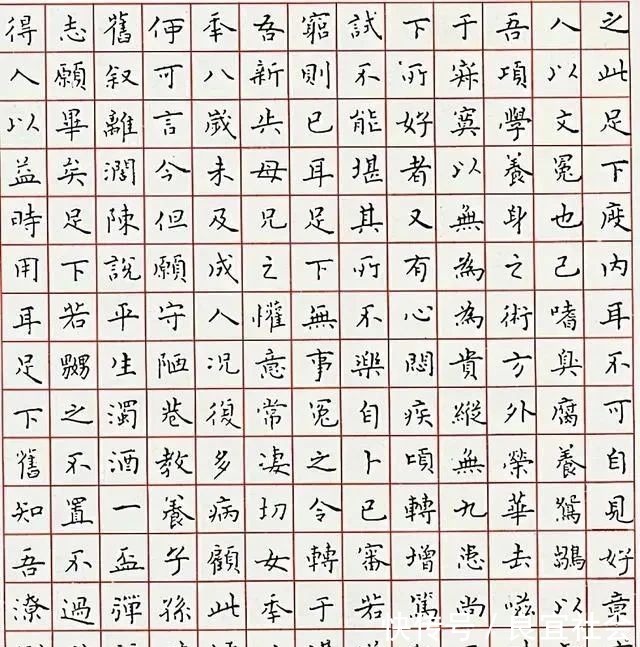 之此足下度内耳不可自見好章
人以文冕也己嗜臭腐養鴛鶵以
吾項學養身之術方外榮華去滋
于寂寞以無為為貴縱無九患尚
下所好者又有心悶疾頃轉增篤
試不能堪其所不樂自卜已審若
窮則已耳足下無事冤之令轉于
吾新失母兄之懽意常凄切女年
年八歲未及成人況復多病顧此
何可言今但願守陋巷教養子孫
舊叙離濶陳說平生濁酒一盃彈
志願畢矣足下若嬲之不置不過
得入以益時用耳足下舊知吾潦
快传号/良宜社会